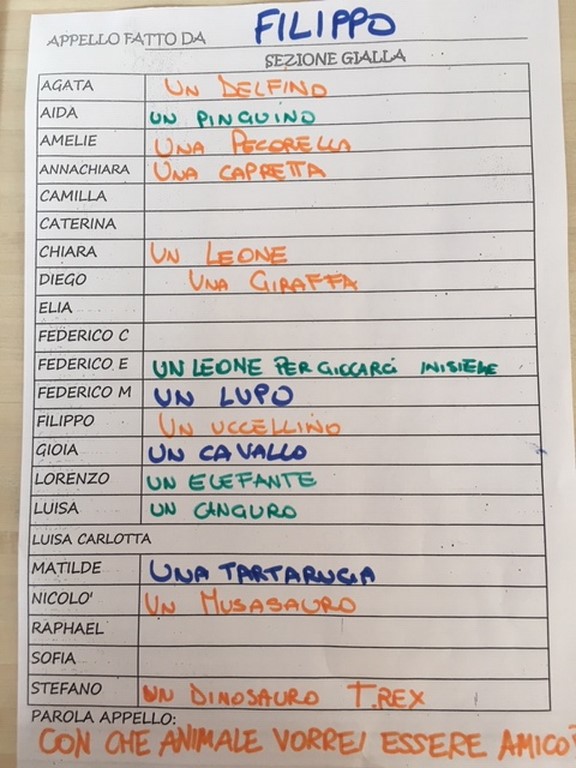 APPELLO FATTO DA FILIPPO
SEZIONE GIALLA
AGATA UN DELFINO
AIDA UN PINGUINO
AMELIE UNA PECORELLA
ANNACHIARA UNA CAPRETTA
CAMILLA
CATERINA
CHIARA UN LEONE
DIEGO UNA GIRAFFA
ELIA
FEDERICO C
FEDERICO E UN LEONE PER GIOCARCI INISIEME
FEDERICO M UN LUPO
FILIPPO UN UCCELLINO
GIOIA UN CAVALLO
LORENZO UN ELEFANTE
LUISA UN CANGURO
LUISA CARLOTTA
MATILDE UNA TARTARUGA
NICOLO' UN MUSASAURO
RAPHAEL
SOFIA
STEFANO UN DINOSAURO T.REX
PAROLA APPELLO:
CON CHE ANIMALE VORREI ESSERE AMICO?